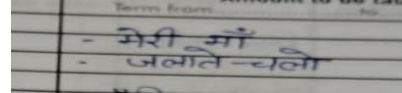 Term from
- मेरी माँ
- जलाते-चलो